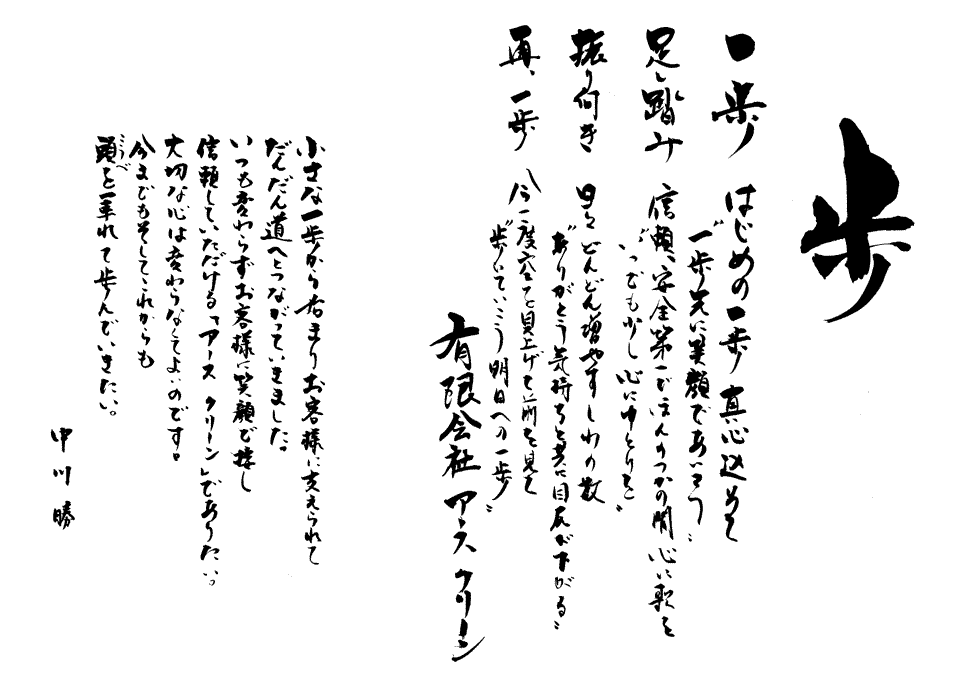 歩
一歩 はじめの一歩 真心込めて
"一歩先に笑顔であいさつ"
足踏み 信頼、安全第一でほんのつかの間心に軟を
"いつでも少し心にゆとりを"
振り付き 日々どんどん増やすしわの数
"ありがとう気持ちと共に目尻が下がる"
再、一歩 今一度空を見上げて前を見て
"歩いていこう明日への一歩"
有限会社 アース クリーン
小さな一歩から始まりお客様に支えられて
だんだん道へとつながっていきました。
いつも変わらずお客様に笑顔で接し
信頼していただける「アース クリーン」でありたい。
大切な心は変わらなくてよいのです。
今までもそしてこれからも
頭を垂れて歩んでいきたい。
こうべ
中川 勝